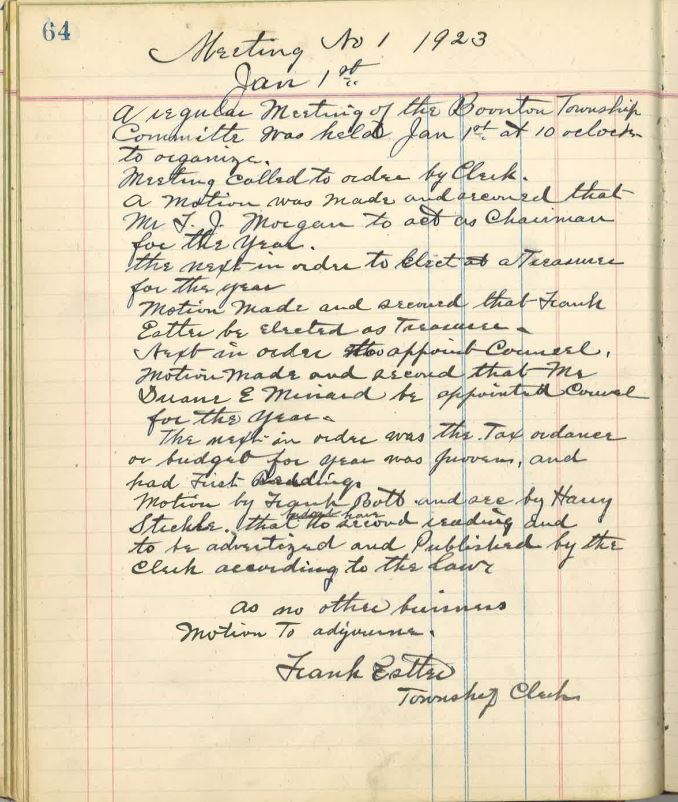 64
Meeting No 1 1923
Jan 1st
A regular Meeting of the Boonton Township
Committe was held Jan 1st at 10 oclock
to organize.
Meeting Called to order by Clerk.
A Motion was made and second that
Mr T. J. Morgan to act as Chairman
for the Year.
the next in order to Elect a Treasure
for the year
Motion Made and second that Frank
Estler be Elected as Treasure.
Next in order to appoint Councel.
Motion Made and second that Mr
Duane E Minard be appointed Councel
for the Year.
The next in order was the Tax ordance
or budget for year was proven, and
had First Redding.
Motion by Frank Bott and sec by Harry
Stickle. that the second reading and
to be advertized and Published by the
Clerk according to the Law
As no other buisness
Motion To adjourne.
Frank Estler
Township Clerk